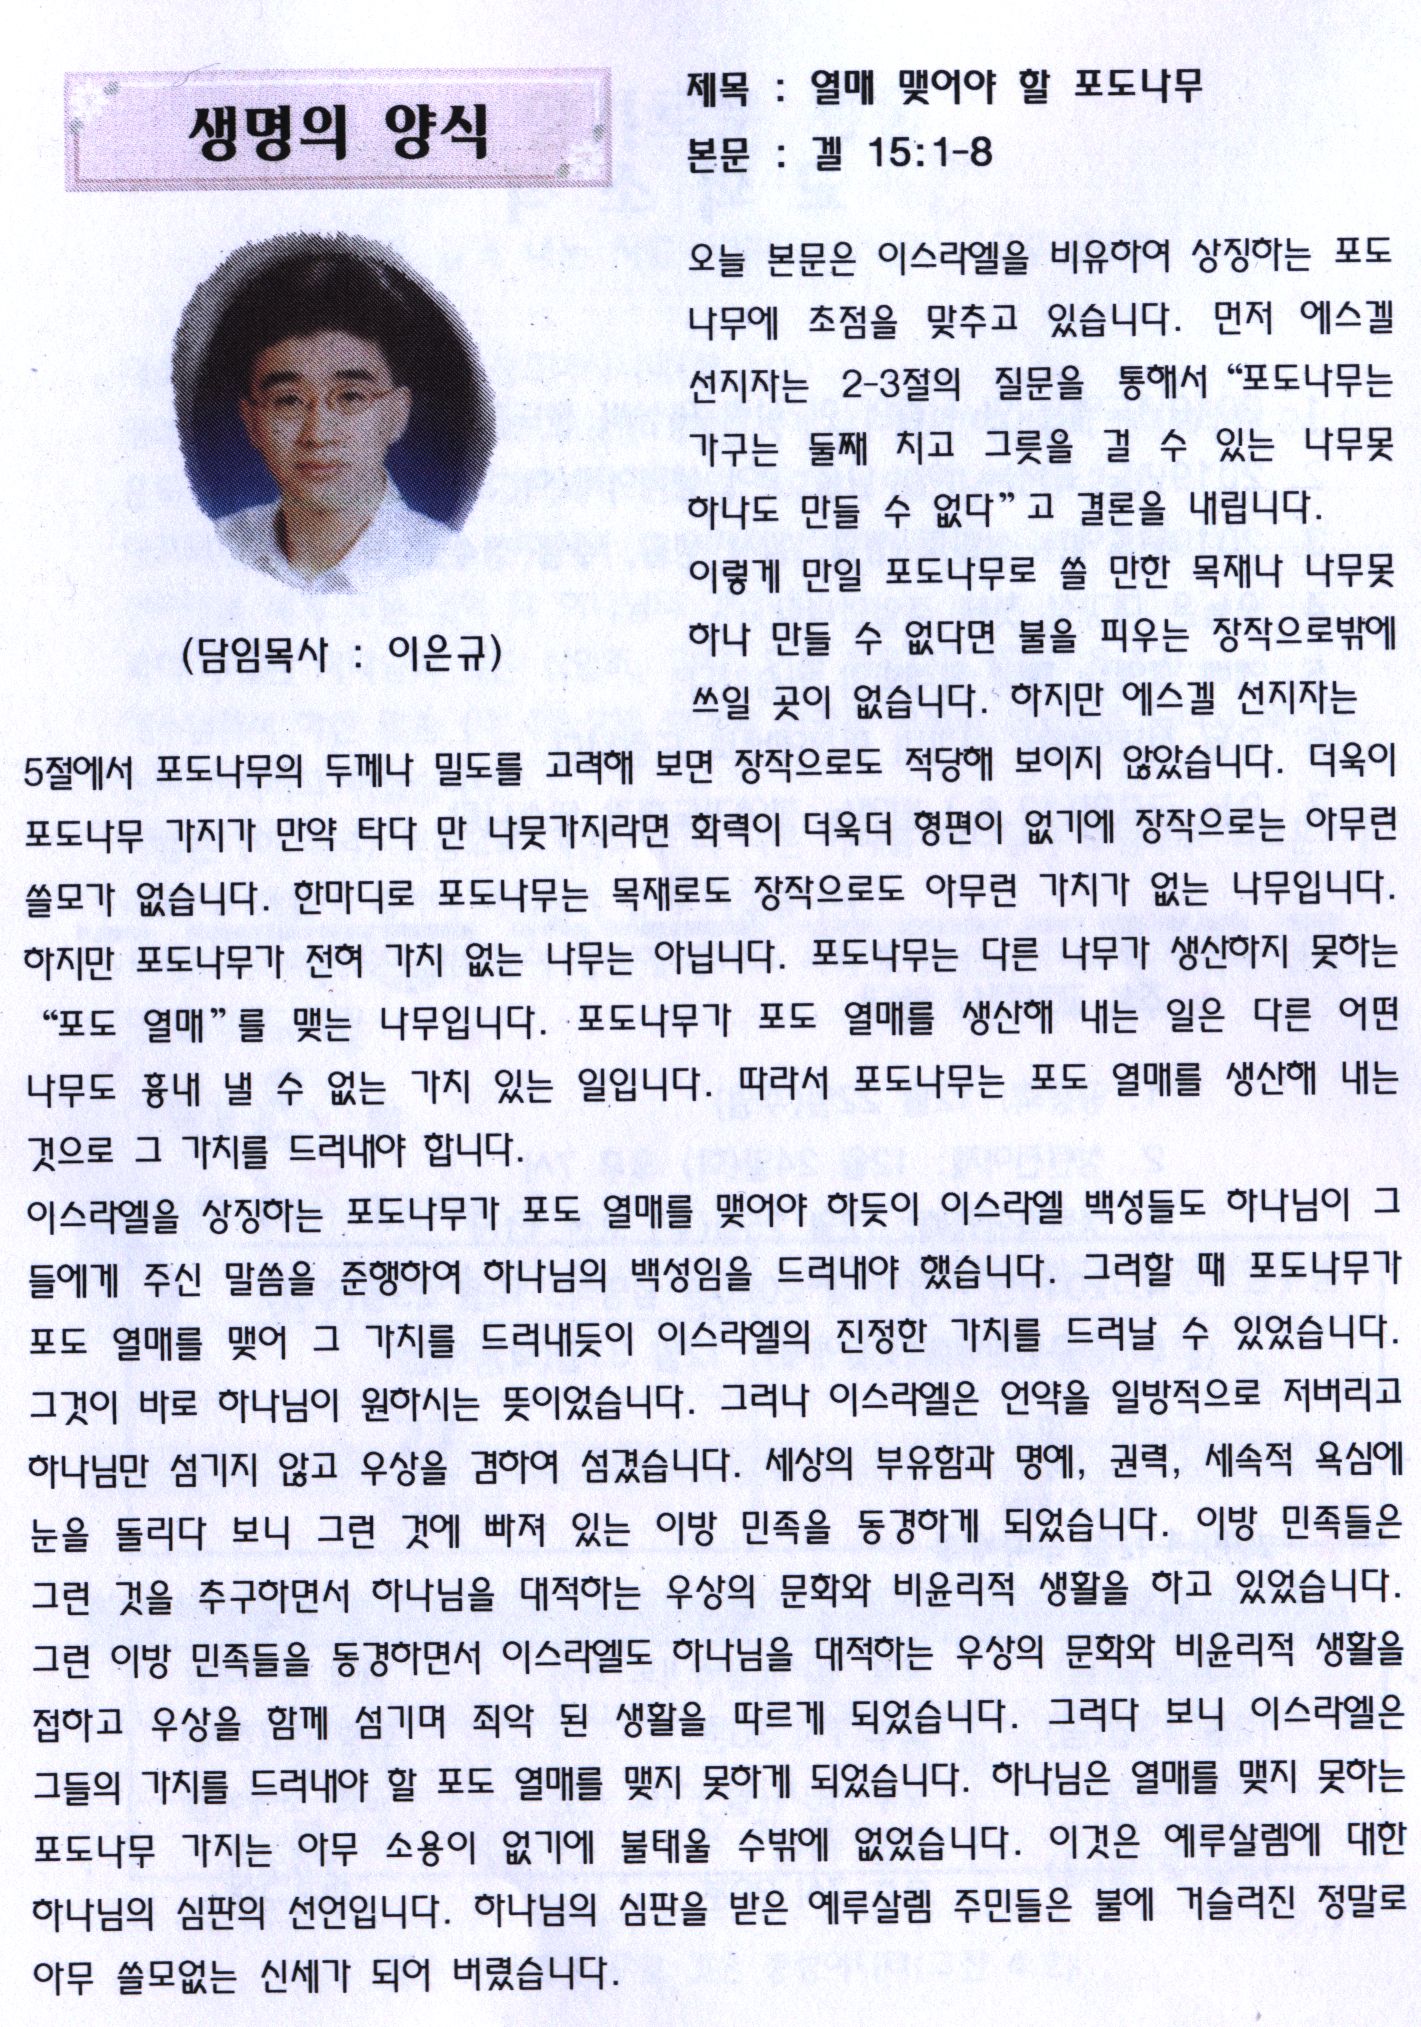 생명의 양식
제목 : 열매 맺어야 할 포도나무
본문 : 겔 15:1-8
(담임목사 : 이은규)
오늘 본문은 이스라엘을 비유하여 상징하는 포도
나무에 초점을 맞추고 있습니다. 먼저 에스겔
선지자는 2-3절의 질문을 통해서 “포도나무는
가구는 둘째 치고 그릇을 걸 수 있는 나무못
하나도 만들 수 없다”고 결론을 내립니다.
이렇게 만일 포도나무로 쓸 만한 목재나 나무못
하나 만들 수 없다면 불을 피우는 장작으로밖에
쓰일 곳이 없습니다. 하지만 에스겔 선지자는
5절에서 포도나무의 두께나 밀도를 고려해 보면 장작으로도 적당해 보이지 않았습니다. 더욱이
포도나무 가지가 만약 타다 만 나뭇가지라면 화력이 더욱더 형편이 없기에 장작으로는 아무런
쓸모가 없습니다. 한마디로 포도나무는 목재로도 장작으로도 아무런 가치가 없는 나무입니다.
하지만 포도나무가 전혀 가치 없는 나무는 아닙니다. 포도나무는 다른 나무가 생산하지 못하는
“포도 열매”를 맺는 나무입니다. 포도나무가 포도 열매를 생산해 내는 일은 다른 어떤
나무도 흉내 낼 수 없는 가치 있는 일입니다. 따라서 포도나무는 포도 열매를 생산해 내는
것으로 그 가치를 드러내야 합니다.
이스라엘을 상징하는 포도나무가 포도 열매를 맺어야 하듯이 이스라엘 백성들도 하나님이 그
들에게 주신 말씀을 준행하여 하나님의 백성임을 드러내야 했습니다. 그러할 때 포도나무가
포도 열매를 맺어 그 가치를 드러내듯이 이스라엘의 진정한 가치를 드러날 수 있었습니다.
그것이 바로 하나님이 원하시는 뜻이었습니다. 그러나 이스라엘은 언약을 일방적으로 저버리고
하나님만 섬기지 않고 우상을 겸하여 섬겼습니다. 세상의 부유함과 명예, 권력, 세속적 욕심에
눈을 돌리다 보니 그런 것에 빠져 있는 이방 민족을 동경하게 되었습니다. 이방 민족들은
그런 것을 추구하면서 하나님을 대적하는 우상의 문화와 비윤리적 생활을 하고 있었습니다.
그런 이방 민족들을 동경하면서 이스라엘도 하나님을 대적하는 우상의 문화와 비윤리적 생활을
접하고 우상을 함께 섬기며 죄악 된 생활을 따르게 되었습니다. 그러다 보니 이스라엘은
그들의 가치를 드러내야 할 포도 열매를 맺지 못하게 되었습니다. 하나님은 열매를 맺지 못하는
포도나무 가지는 아무 소용이 없기에 불태울 수밖에 없었습니다. 이것은 예루살렘에 대한
하나님의 심판의 선언입니다. 하나님의 심판을 받은 예루살렘 주민들은 불에 거슬러진 정말로
아무 쓸모없는 신세가 되어 버렸습니다.